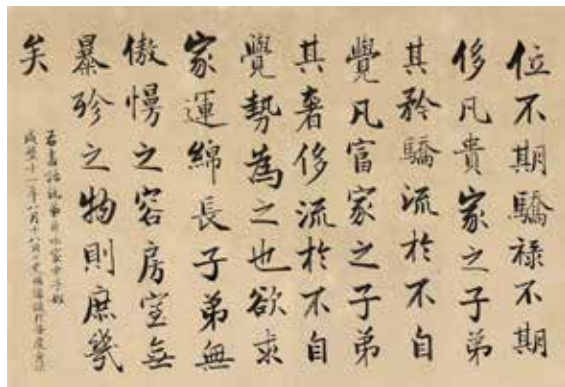 位不期驕祿不期
侈凡貴家之子弟
其矜驕流於不自
覺凡富家之子弟
其奢侈流於不自
覺勢為之也欲求
家運綿長子弟無
傲慢之容房室無
暴殄之物則庶幾
矣
咸豐十一年六月十八